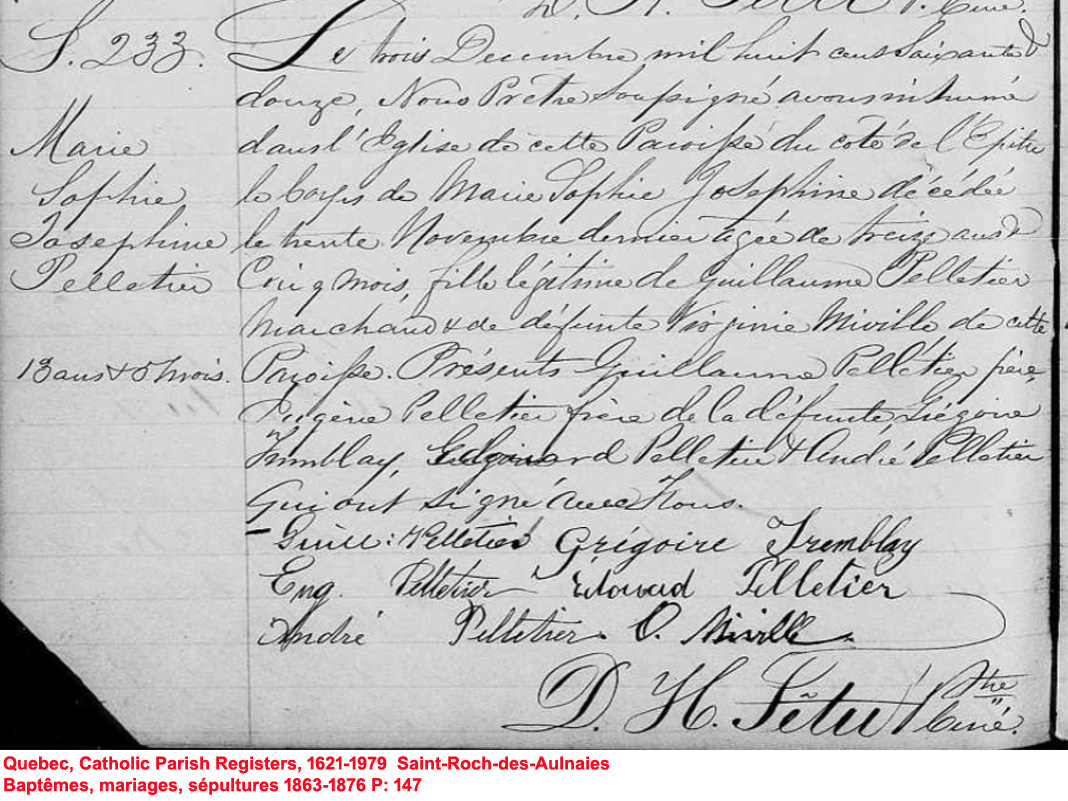 D. H. Têtu Ptre Curé.
S. 233.
Le trois Decembre mil huit cent Soixante &
douze, Nous Prêtre Soussigné avons inhumé
dans l'Eglise de cette Paroisse du coté de l'Epitre
Marie
Sophie
Josephine
Pelletier
le corps de Marie Sophie Josephine décédée
le trente Novembre dernier agée de treize ans &
Cinq mois, fille légitime de Guillaume Pelletier
Marchand & de défunte Virginie Miville de cette
13 ans & 5 mois.
Paroisse. Présents Guillaume Pelletier père,
Eugène Pelletier frère de la défunte, Grégoire
Tremblay, Edouard Pelletier & André Pelletier
Qui ont signé avec Nous.
Guill: Pelletier Grégoire Tremblay
Eug. Pelletier Edouard Pelletier
André Pelletier. O. Miville.
D. H. Têtu Ptre
Curé.
Quebec, Catholic Parish Registers, 1621-1979 Saint-Roch-des-Aulnaies
Baptêmes, mariages, sépultures 1863-1876 P: 147